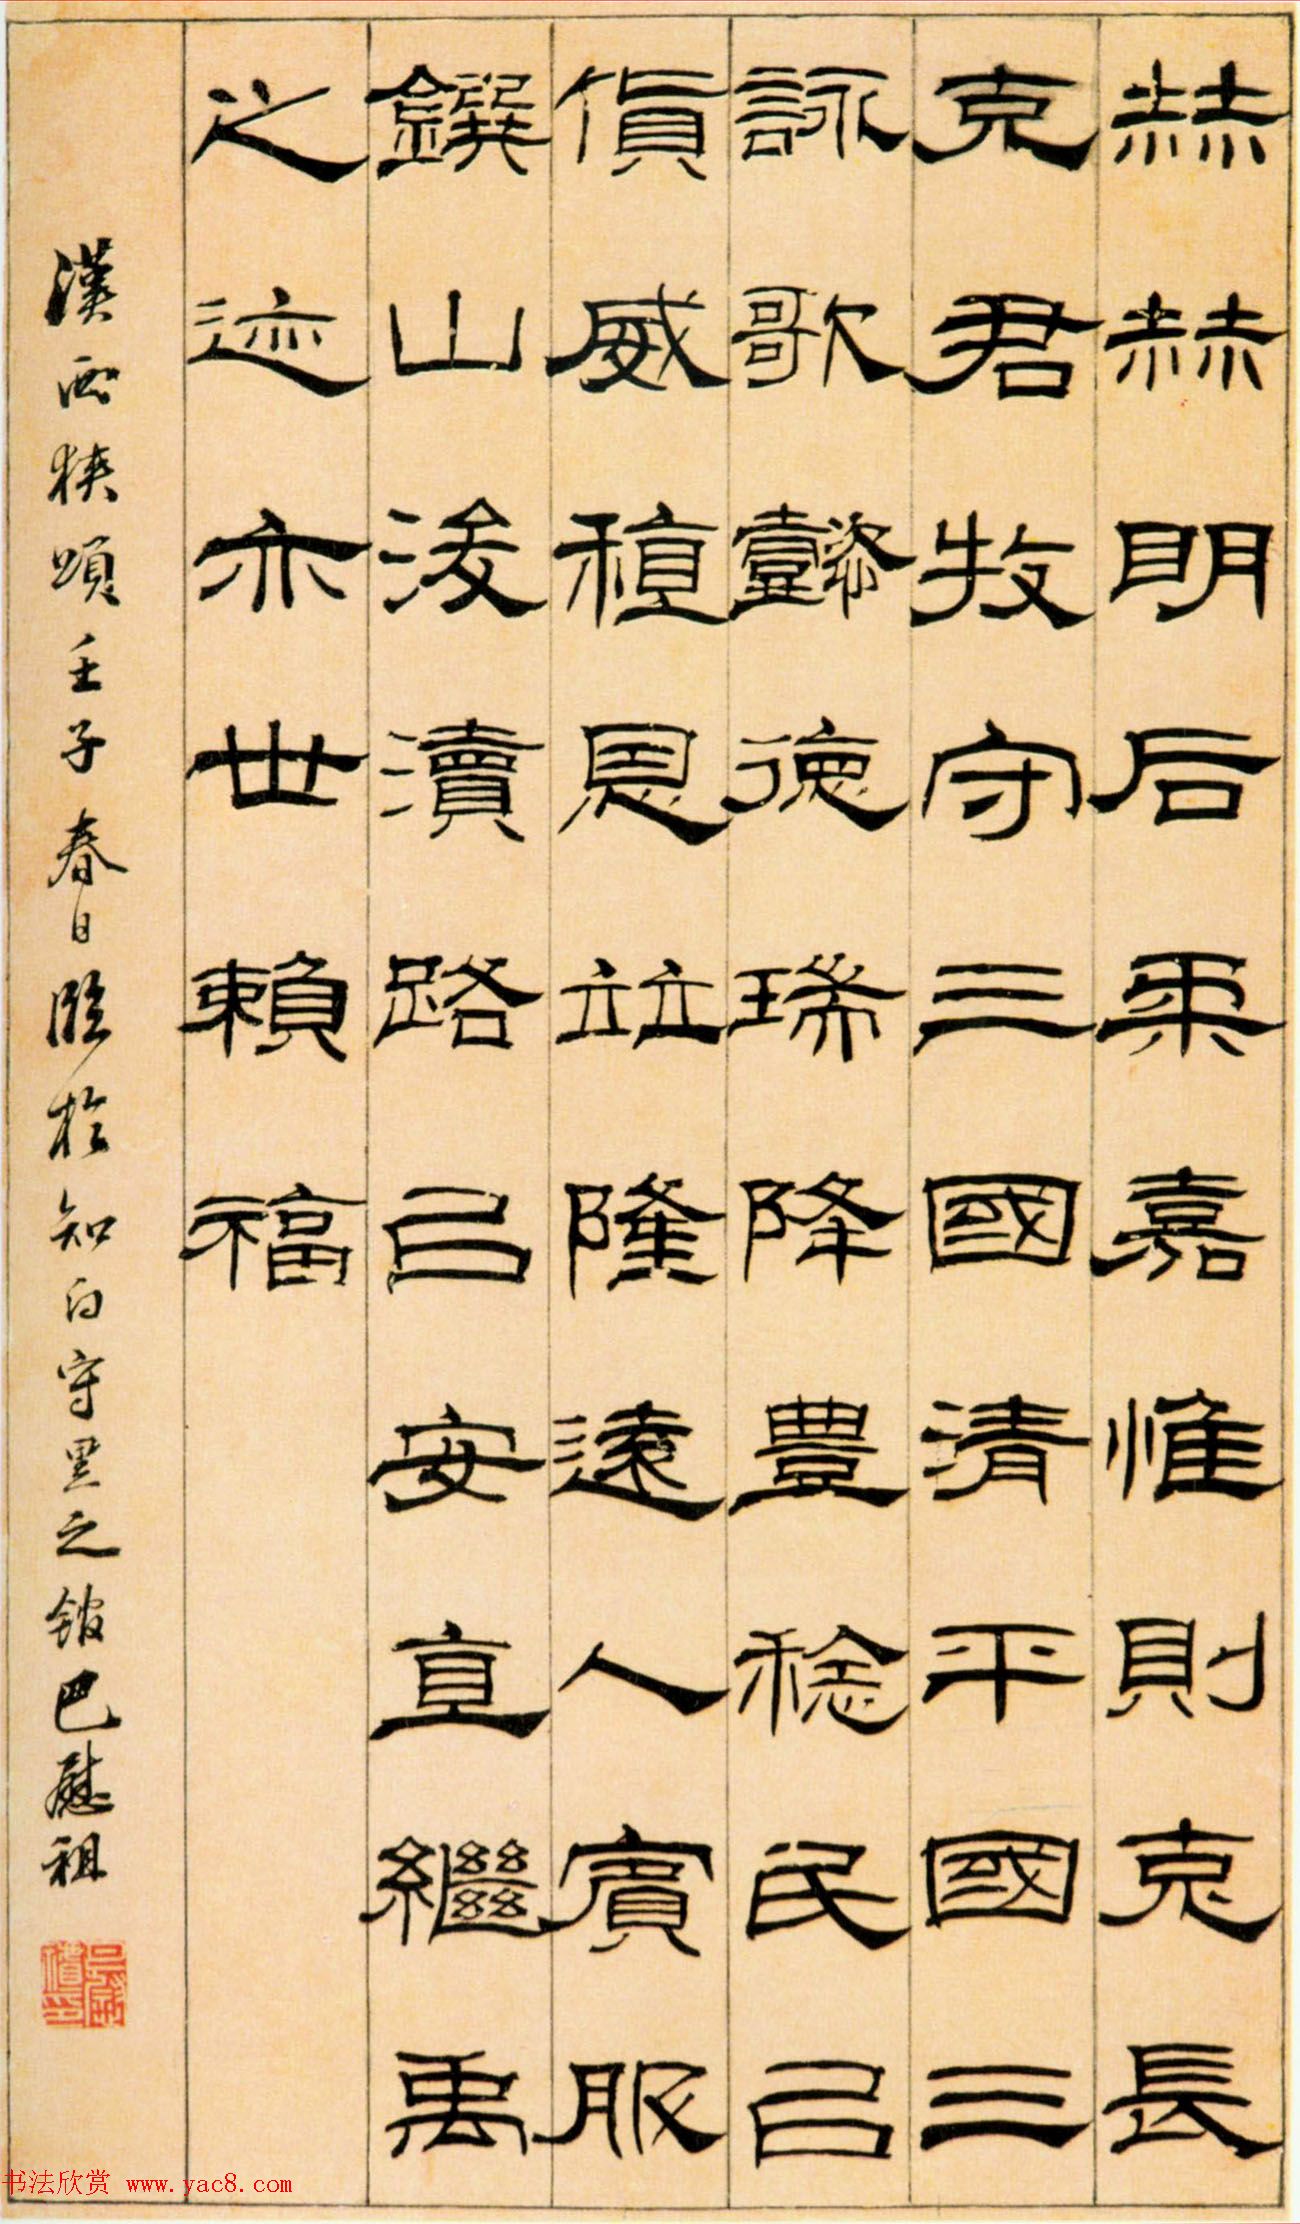 赫赫明后柔嘉惟則克長
克君牧守三國清平國三
詠歌懿德瑞降豐稔民㠯
貨威稙恩竝隆遠人賓服
鐉山浚瀆路㠯安直繼禹
之迹亦世賴福
漢西狹頌壬子春日臨於知白守黑之館巴慰祖
书法欣赏 www.yac8.com